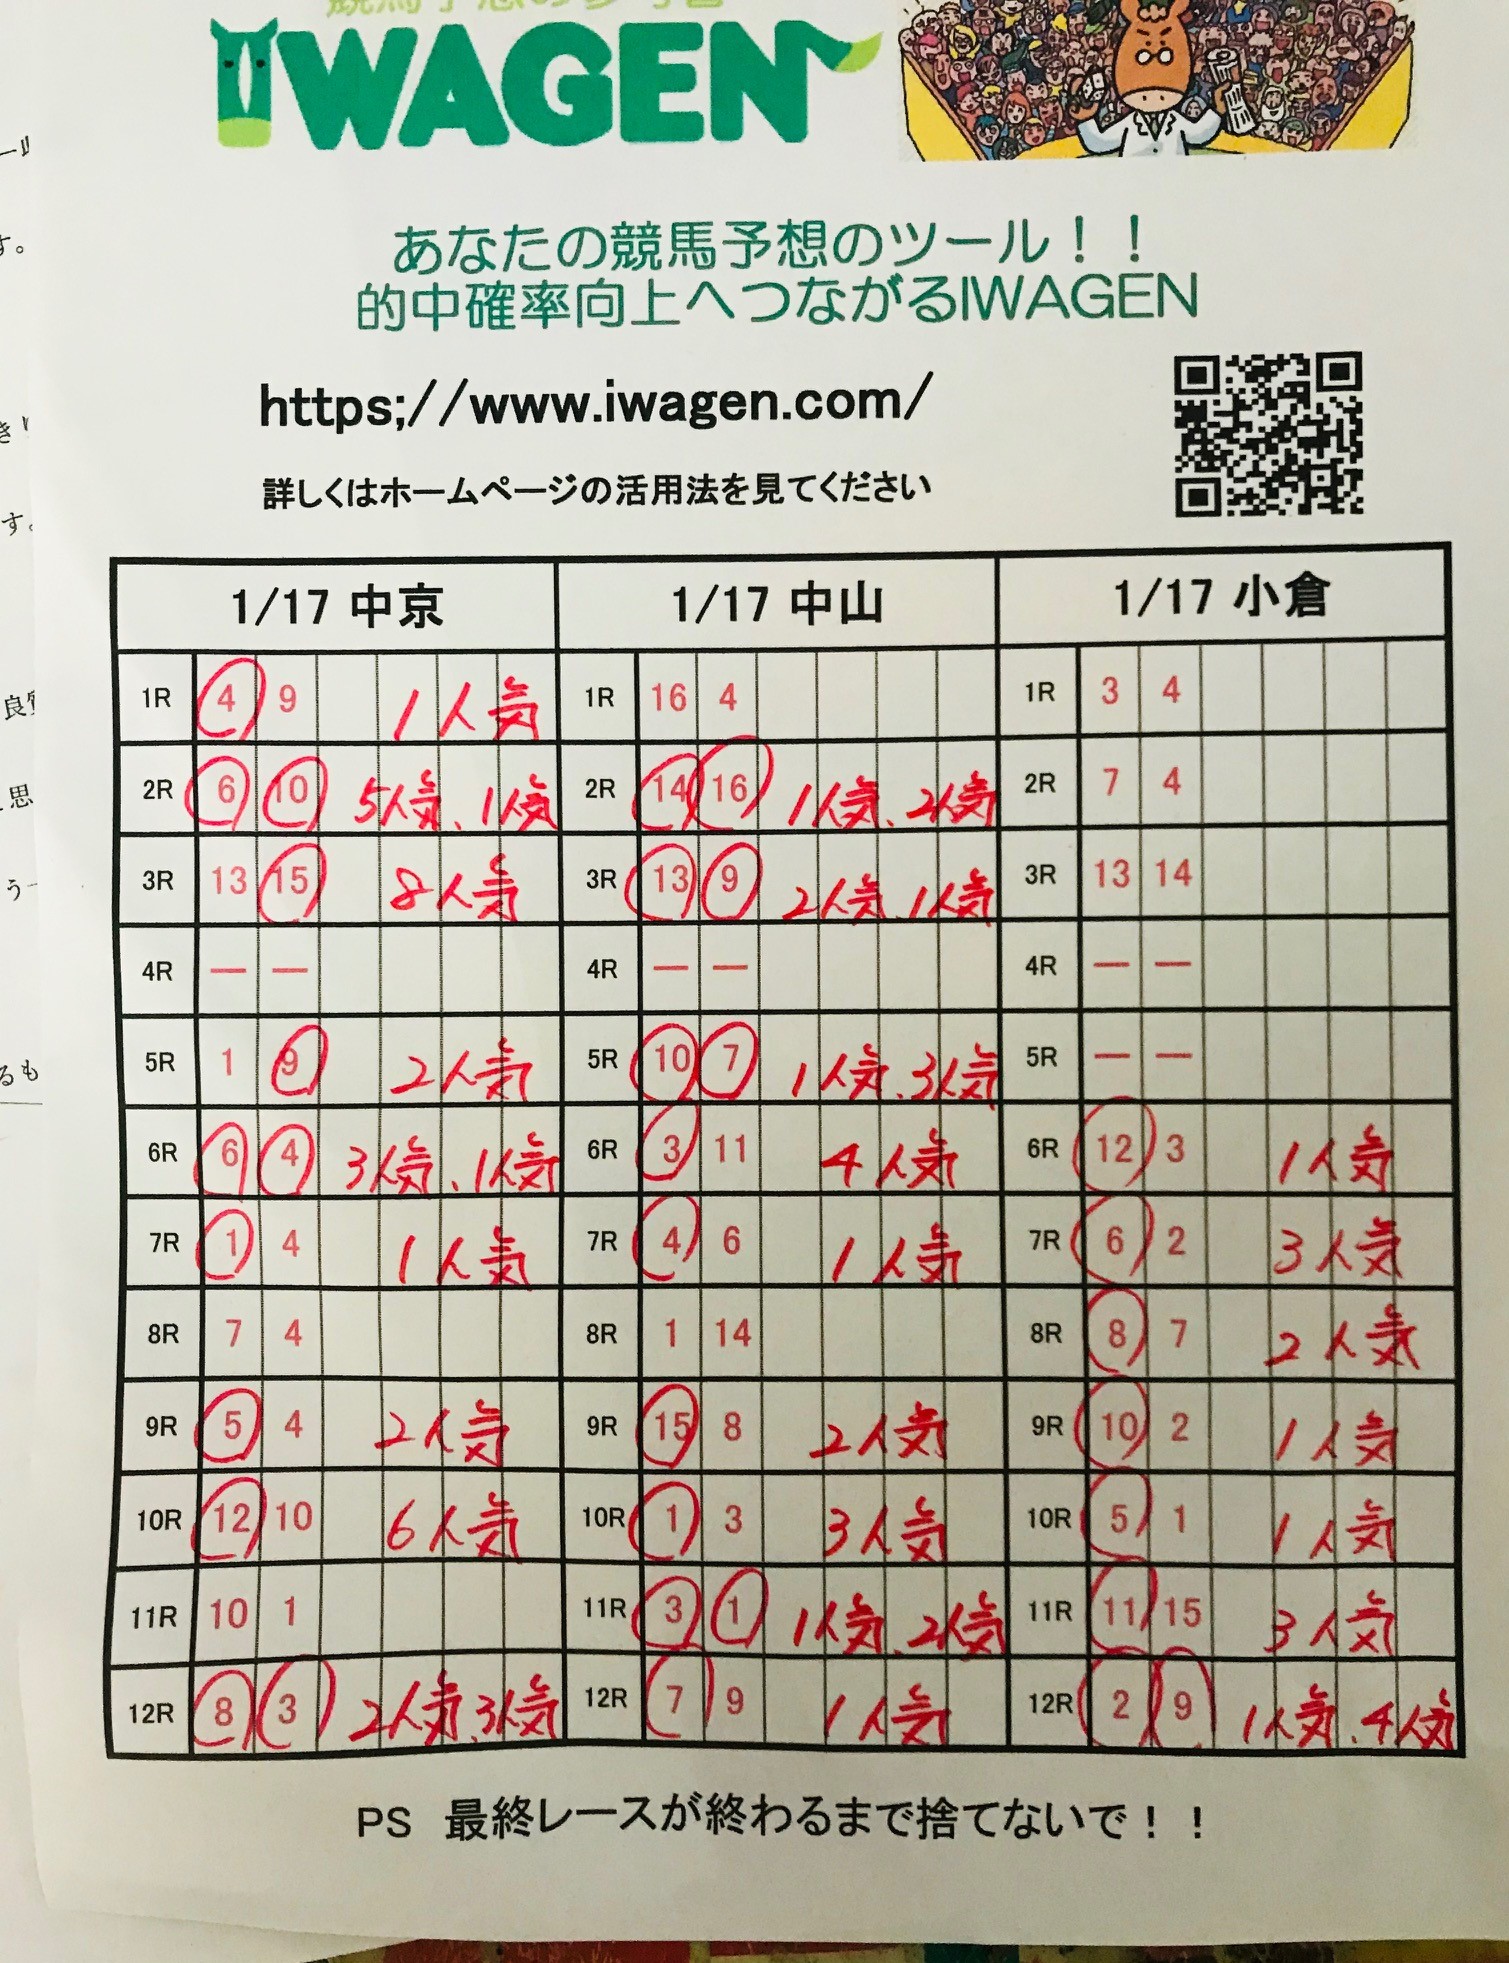 IWAGEN
あなたの競馬予想のツール！！
的中確率向上へつながるIWAGEN
https;//www.iwagen.com/
詳しくはホームページの活用法を見てください
1/17 中京 1/17 中山 1/17 小倉
1R 4 9 1人気 1R 16 4 1R 3 4
2R 6 10 5人気、1人気 2R 14 16 1人気、2人気 2R 7 4
3R 13 15 8人気 3R 13 9 2人気、1人気 3R 13 14
4R — — 4R — — 4R — —
5R 1 9 2人気 5R 10 7 1人気、3人気 5R — —
6R 6 4 3人気、1人気 6R 3 11 4人気 6R 12 3 1人気
7R 1 4 1人気 7R 4 6 1人気 7R 6 2 3人気
8R 7 4 8R 1 14 8R 8 7 2人気
9R 5 4 2人気 9R 15 8 2人気 9R 10 2 1人気
10R 12 10 6人気 10R 1 3 3人気 10R 5 1 1人気
11R 10 1 11R 3 1 1人気、2人気 11R 11 15 3人気
12R 8 3 2人気、3人気 12R 7 9 1人気 12R 2 9 1人気、4人気
PS 最終レースが終わるまで捨てないで！！